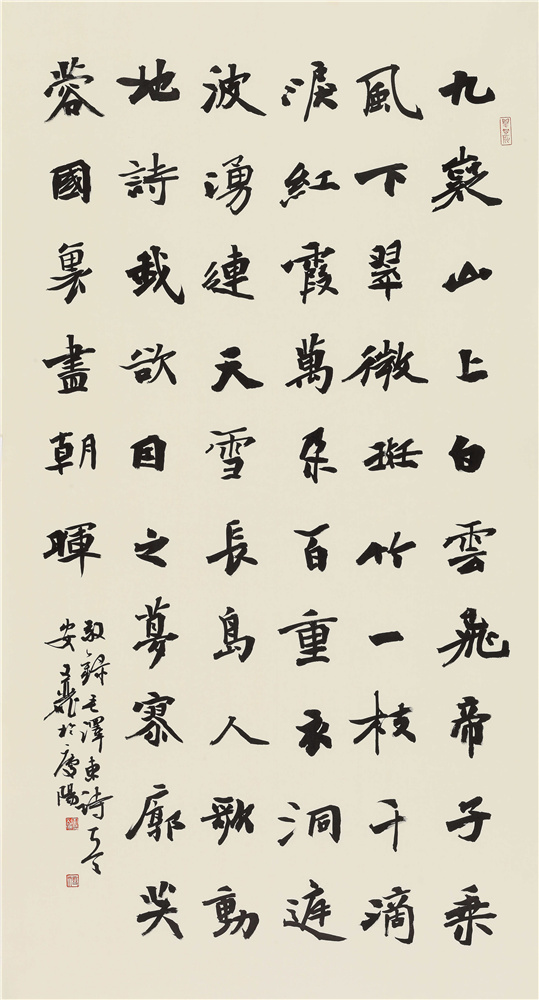 九嶷山上白雲飛帝子乘
風下翠微斑竹一枝千滴
淚紅霞萬朵百重衣洞庭
波湧連天雪長島人歌動
地詩我欲因之夢寥廓芙
蓉國裏盡朝暉
敬錄毛澤東詩
安於慶陽